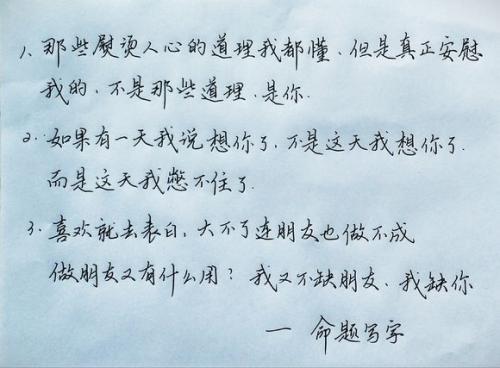 1、那些熨烫人心的道理我都懂、但是真正安慰
我的、不是那些道理、是你.
2、如果有一天我说想你了、不是这天我想你了.
而是这天我憋不住了.
3、喜欢就去表白、大不了连朋友也做不成
做朋友又有什么用？我又不缺朋友、我缺你
— 命题写字